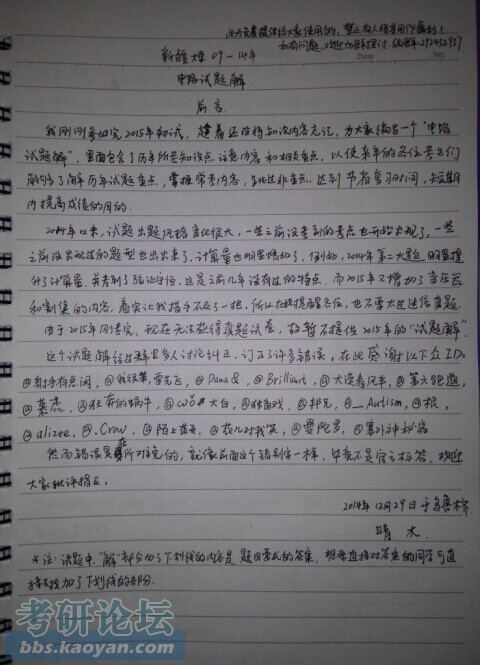 此为免费提供给大家使用的，禁止有人将其用作盈利！
如有问题，欢迎加群探讨，
Date No.
新疆大学 09-14年
电路试题解
前言
我刚刚参加完2015年初试，趁着还没将知识内容忘记，为大家编写一个“电路
试题解”，里面包含了历年所考知识点、注意内容和相关重点，以使来年的各位考生们
能够了解历年试题重点，掌握常考内容，去除非重点，达到节省复习时间，在短期
内提高成绩的目的。
2014年以来，试题出题风格变化很大，一些之前没考到的考点也开始出现了，一些
之前没出现过的题型也出来了，计算量也明显增加了，例如，2014年第二大题明显提
升了计算量，并考到了验证守恒，这是之前几年没有过的特点，而2015年又增加了变压器
和割集的内容，着实让我措手不及了一把，所以在此提醒各位，也不要太过迷信真题。
由于2015年刚考完，现在无法获得真题试卷，故暂不提供2015年的“试题解”。
这个试题解经过群里多人讨论纠正，订正了许多错误，在此感谢以下众ID。
@射手有点闲，@我很菜，雷先飞，@Dana&，@Brilliant，@大漠看风车，@第六跑道，
@慕杰，@狂奔的蜗牛，@ 大白，@独角戏，@邦兄，@__Autism，@根，
@alizee，@.Crow，@陌上蓝天，@花儿对我笑，@曼陀罗，@塞外神秘客
然而错误是在所难免的，就像前面这个错别字一样，毕竟不是官方标答，欢迎
大家批评指正。
2014年12月29日 于乌鲁木齐
晴木
*注：试题中，“解”部分加了下划线的内容是题目需求的答案，想要直接对答案的同学可直
接去找加了下划线的部分。
考研论坛
bbs.kaoyan.com